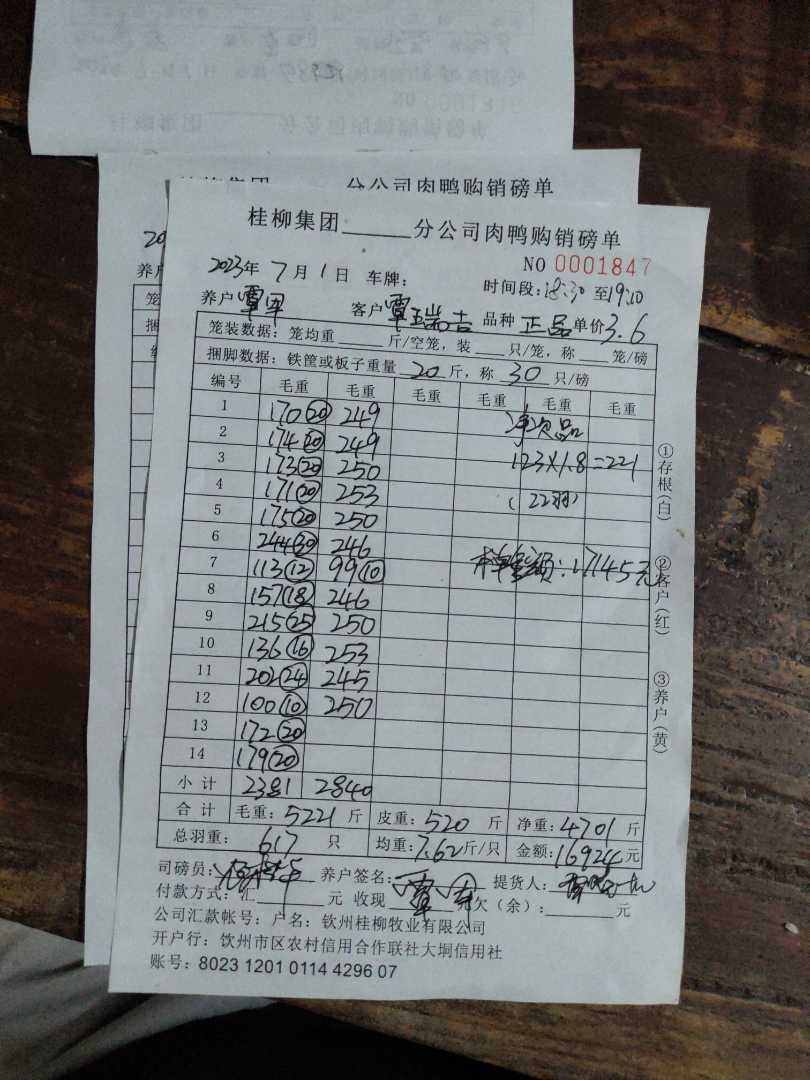 分公司肉鸭购销磅单
桂柳集团______分公司肉鸭购销磅单
NO 0001847
2023年 7月1日 车牌: 时间段:18:30 至19:10
养户 覃军 客户 覃瑞吉 品种 正品 单价3.6
笼装数据: 笼均重____斤/空笼, 装____只/笼, 称____笼/磅
捆脚数据: 铁筐或板子重量 20 斤, 称 30 只/磅
编号 毛重 毛重 毛重 毛重 毛重 毛重
1 170(20) 249 净次品
2 174(20) 249
3 173(20) 250 123×1.8=221
4 171(20) 253 (22羽)
5 175(20) 250
6 244(30) 246
7 113(12) 99(10) 本单金额:17145元
8 157(18) 246
9 215(25) 250
10 136(16) 253
11 202(24) 245
12 100(10) 250
13 172(20)
14 179(20)
小计 2381 2840
合计 毛重: 5221 斤 皮重: 520 斤 净重: 4701 斤
总羽重: 617 只 均重: 7.62斤/只 金额: 16924元
司磅员: 养户签名: 覃军 提货人:
付款方式: 汇______元 收现______元欠(余):______元
公司汇款帐号: 户名: 钦州桂柳牧业有限公司
开户行: 钦州市区农村信用合作联社大垌信用社
账号: 8023 1201 0114 4296 07
①存根(白)
②客户(红)
③养户(黄)